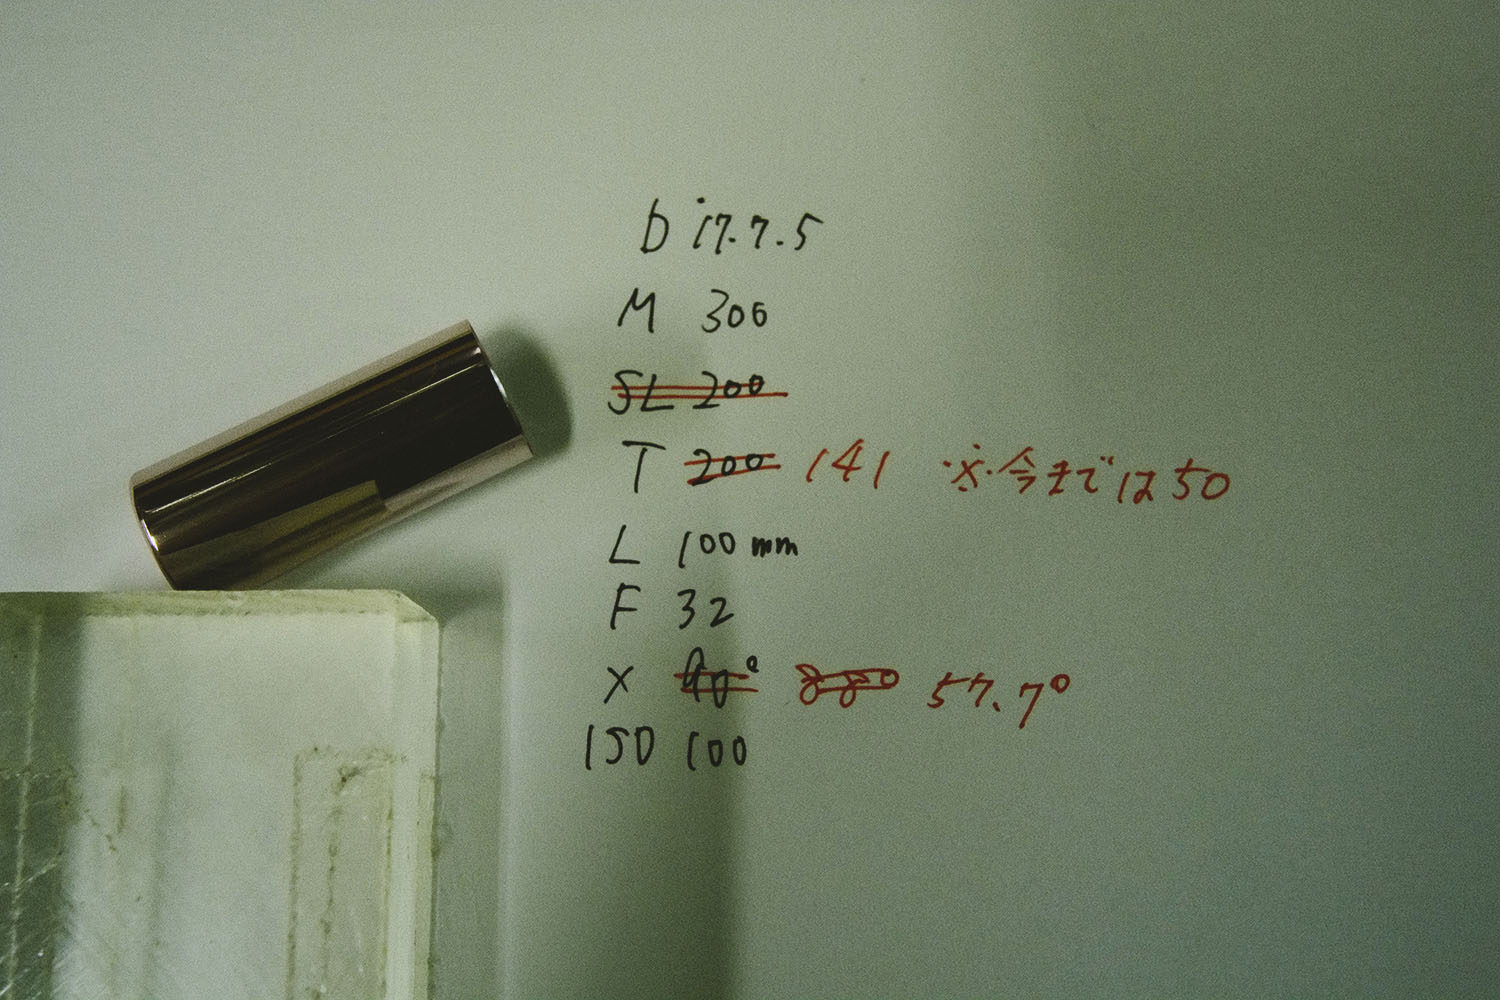 D 17.7.5
M 300
SL 200
T 200 141 ※今までは50
L 100mm
F 32
X 90° 57.7°
ISO 100